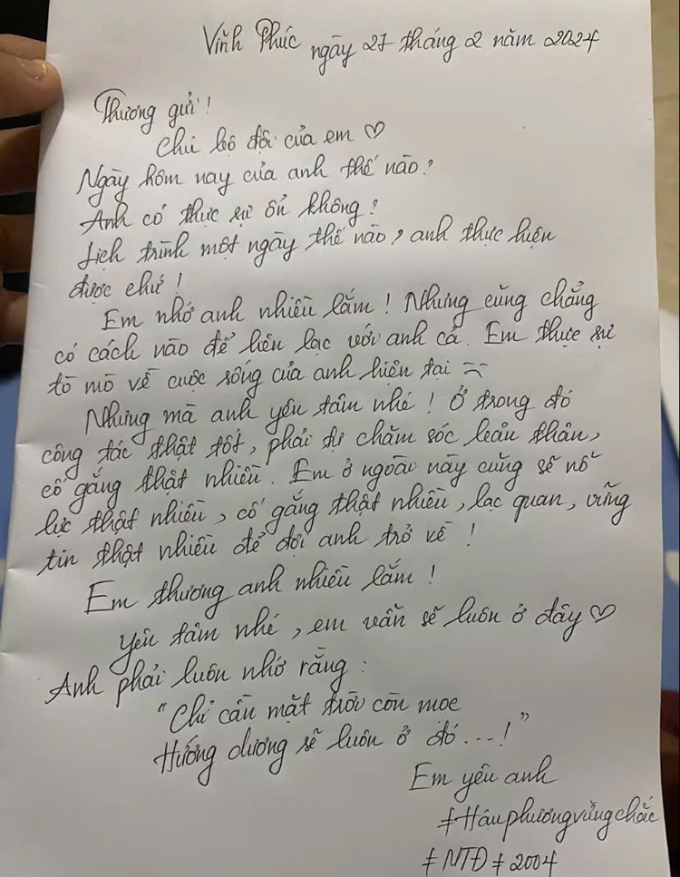 Vĩnh Phúc ngày 27 tháng 2 năm 2024
Thương gửi!
Chú bộ đội của em ♡
Ngày hôm nay của anh thế nào?
Anh có thực sự ổn không?
Lịch trình một ngày thế nào, anh thực hiện
được chứ!
Em nhớ anh nhiều lắm! Nhưng cũng chẳng
có cách nào để liên lạc với anh cả. Em thực sự
tò mò về cuộc sống của anh hiện tại
Nhưng mà anh yên tâm nhé! Ở trong đó
công tác thật tốt, phải tự chăm sóc bản thân,
cố gắng thật nhiều. Em ở ngoài này cũng sẽ nỗ
lực thật nhiều, cố gắng thật nhiều, lạc quan, vững
tin thật nhiều để đợi anh trở về!
Em thương anh nhiều lắm!
Yên tâm nhé, em vẫn sẽ luôn ở đây ♡
Anh phải luôn nhớ rằng:
"Chỉ cần mặt trời còn mọc
Hướng dương sẽ luôn ở đó...!"
Em yêu anh
#Hậuphươngvữngchắc
#NTĐ #2004